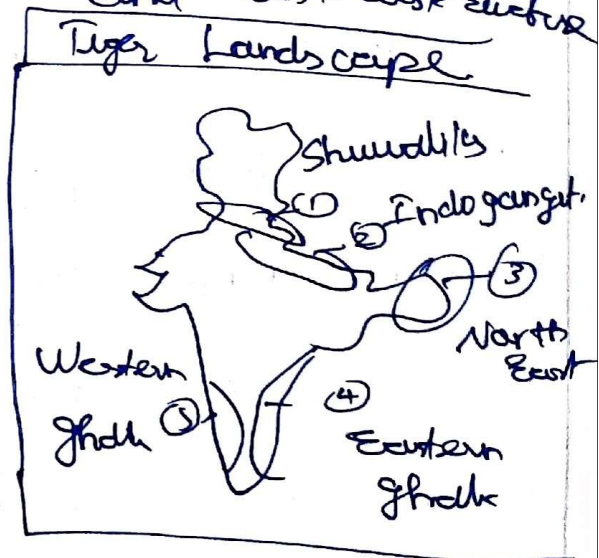 Tiger Landscape
Shiwaliks
①
② Indo ganget.
③
North
East
Western
Ghats ⑤
④
Eastern
Ghats